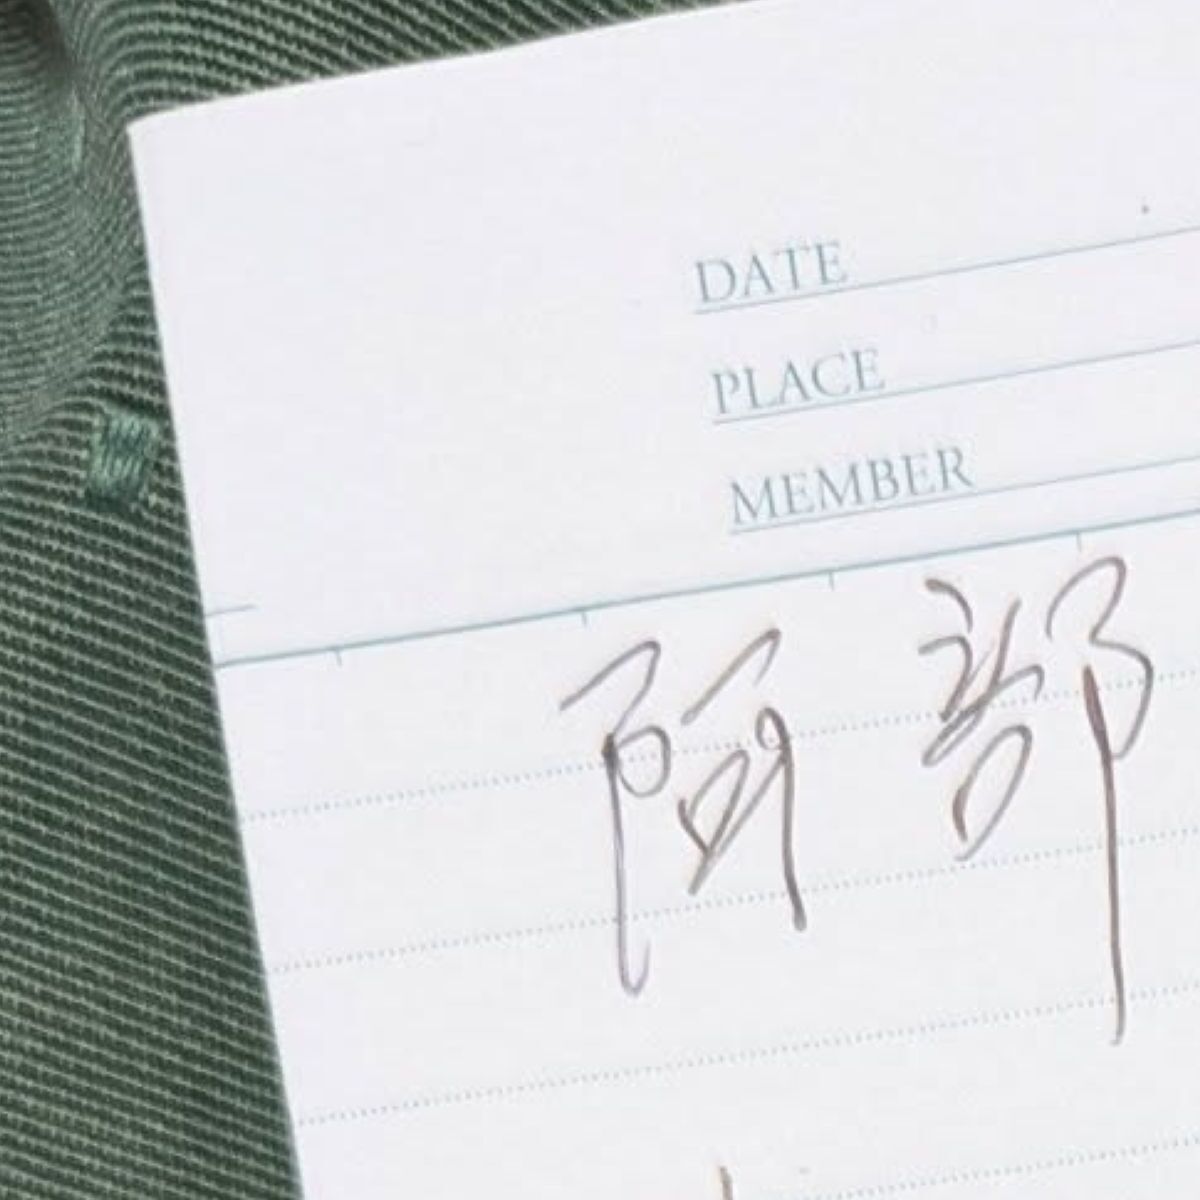 DATE
PLACE
MEMBER
阿部